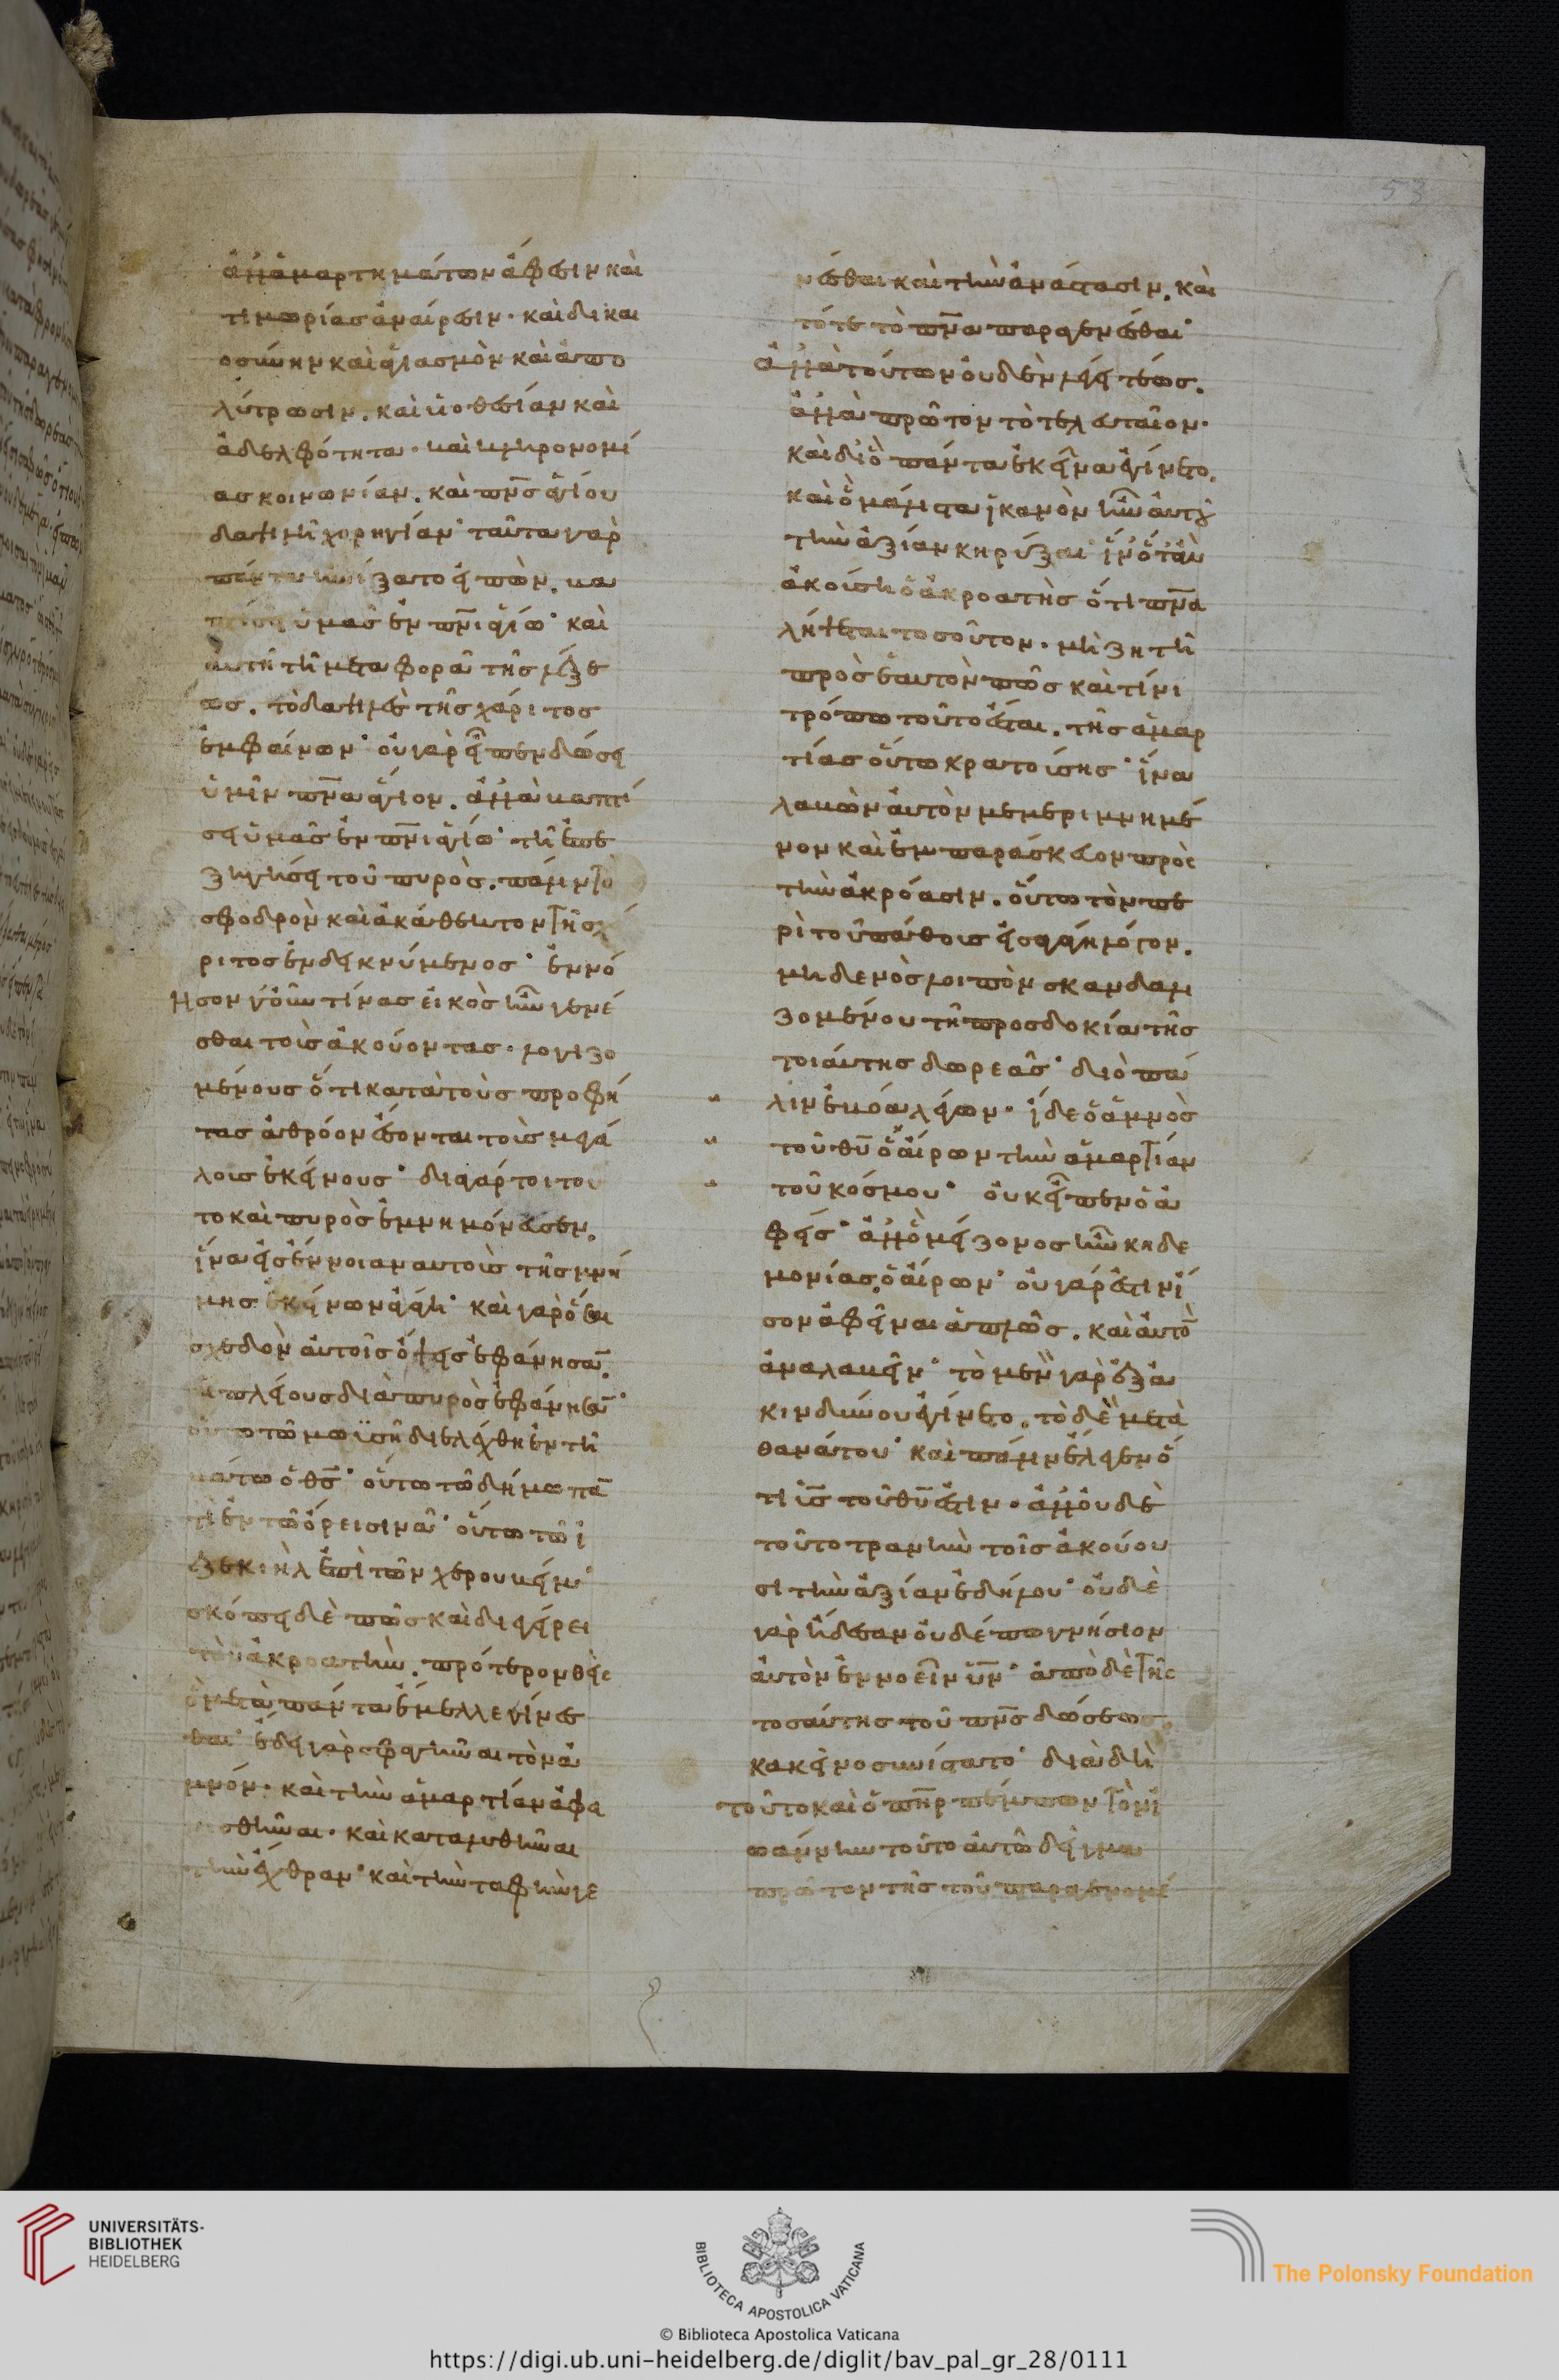 ἀλλ' ἁμαρτημάτων ἄφεσιν καὶ
τιμωρίας ἀναίρεσιν· καὶ δικαι
οσύνην καὶ ἁγιασμὸν καὶ ἀπο
λύτρωσιν. καὶ υἱοθεσίαν καὶ
ἀδελφότητα. καὶ κληρονομί
ας κοινωνίαν. καὶ πν̅ς ἁγίου
δαψιλῆ χορηγίαν· ταῦτα γὰρ
πάντα ἠνίξατο εἰπὼν. βα
πτίσει ὑμᾶς ἐν πν̅ι ἁγίω· καὶ
αὐτῆ τῆ μεταφορᾶ τῆς λέξε
ως. τὸ δαψιλὲς τῆς χάριτος
ἐμφαίνων· οὐ γὰρ εἶπεν δώσει
ὑμῖν πν̅α ἅγιον. ἀλλὰ βαπτί
σει ὑμᾶς ἐν πν̅ι ἁγίω· τῆ ἐπε
ξηγήσει τοῦ πυρὸς. πάλιν τὸ
σφοδρὸν καὶ ἀκάθεκτον τῆς χά
ριτος ἐνδεικνύμενος· ἐννό
ησον γοῦν τίνας εἰκὸς ἦν γενέ
σθαι τοὺς ἀκούοντας. λογιζο
μένους ὅτι κατὰ τοὺς προφή
τας ἀθρόον ἔσονται τοὺς μεγά
λους ἐκείνους· διὰ γάρ τοι τοῦ
το καὶ πυρὸς ἐμνημόνευσεν.
ἵνα εἰς ἔννοιαν αὐτοὺς τῆς μνή
μης ἐκείνων ἀγάγη· καὶ γὰρ ὅσαι
σχεδὸν αὐτοῖς ὄψεις ἐφάνησαν̅.
αἱ πλείους διὰ πυρὸς ἐφάνησαν̅·
οὕτω τῶ μωϋσῆ διελέχθη ἐν τῆ
βάτω ὁ θ̅ς· οὕτω τῶ δήμω παν̅
τὶ ἐν τῶ ὄρει σινᾶ· οὕτω τῶ ἰ
εζεκιὴλ ἐπὶ τῶν χερουβείμ·
σκόπει δὲ πῶς καὶ διεγείρει
τὸν ἀκροατὴν. πρότερον θεὶς
ὃ μετὰ πάντα ἔμελλε γίνεσ
θαι· ἔδει γὰρ σφαγῆναι τὸν ἀ
μνόν. καὶ τὴν ἁμαρτίαν ἀφα
νισθῆναι. καὶ καταλυθῆναι
τὴν ἔχθραν· καὶ τὴν ταφὴν γε
53
νέσθαι καὶ τὴν ἀνάστασιν. καὶ
τότε τὸ πν̅α παραγενέσθαι·
ἀλλὰ τούτων οὐδὲν λέγει τέως.
ἀλλὰ πρῶτον τὸ τελευταῖον·
καὶ δι' ὃ πάντα ἐκεῖνα ἐγίνετο.
καὶ ὃ μάλιστα ἱκανὸν ἦν αὐτοῦ
τὴν ἀξίαν κηρύξαι· ἵν' ὅταν
ἀκούση ὁ ἀκροατὴς ὅτι πν̅α
λήψεται τοσοῦτον. μὴ ζητῆ
πρὸς ἑαυτὸν πῶς καὶ τίνι
τρόπω τοῦτο ἔσται. τῆς ἁμαρ
τίας οὕτω κρατούσης· ἵνα
λαβὼν αὐτὸν μεμεριμνημέ
νον καὶ ἐμπαράσκευον πρὸς
τὴν ἀκρόασιν. οὕτω τὸν πε
ρὶ τοῦ πάθους εἰσαγάγη λόγον.
μηδενὸς λοιπὸν σκανδαλι
ζομένου τῆ προσδοκία τῆς
τοιαύτης δωρεᾶς· διὸ πά
λιν ἐβόα λέγων· ἴδε ὁ ἀμνὸς
τοῦ θ̅υ ὁ αἴρων τὴν ἁμαρτίαν
τοῦ κόσμου· οὐκ εἶπεν ὁ ἀ
φεὶς· ἀλλ' ὃ μείζονος ἦν κηδε
μονίας. ὁ αἴρων· οὐ γάρ ἐστιν ἴ
σον ἀφεῖναι ἁπλῶς. καὶ αὐτὸν̅
ἀναλαβεῖν· τὸ μὲν γὰρ ἔξω
κινδύνου ἐγίνετο. τὸ δὲ μετὰ
θανάτου· καὶ πάλιν ἔλεγεν ὅ
τι υ̅ς τοῦ θ̅υ ἐστιν. ἀλλ' οὐδὲ
τοῦτο τρανὴν τοῖς ἀκούου
σι τὴν ἀξίαν ἐδήλου· οὐδὲ
γὰρ ἤδεσαν οὐδέπω γνήσιον
αὐτὸν ἐννοεῖν υ̅ν· ἀπὸ δὲ τῆς
τοσαύτης τοῦ πν̅ς δώσεως
κακεῖνο συνίστατο· διὰ δὴ
τοῦτο καὶ ὁ π̅ηρ πέμπων τὸν ἰ
ωάννην τοῦτο αὐτῶ δεῖγμα
πρῶτον τῆς τοῦ παραγενομέ
UNIVERSITÄTS-
BIBLIOTHEK
HEIDELBERG
BIBLIOTECA APOSTOLICA VATICANA
The Polonsky Foundation
© Biblioteca Apostolica Vaticana
https://digi.ub.uni-heidelberg.de/diglit/bav_pal_gr_28/0111